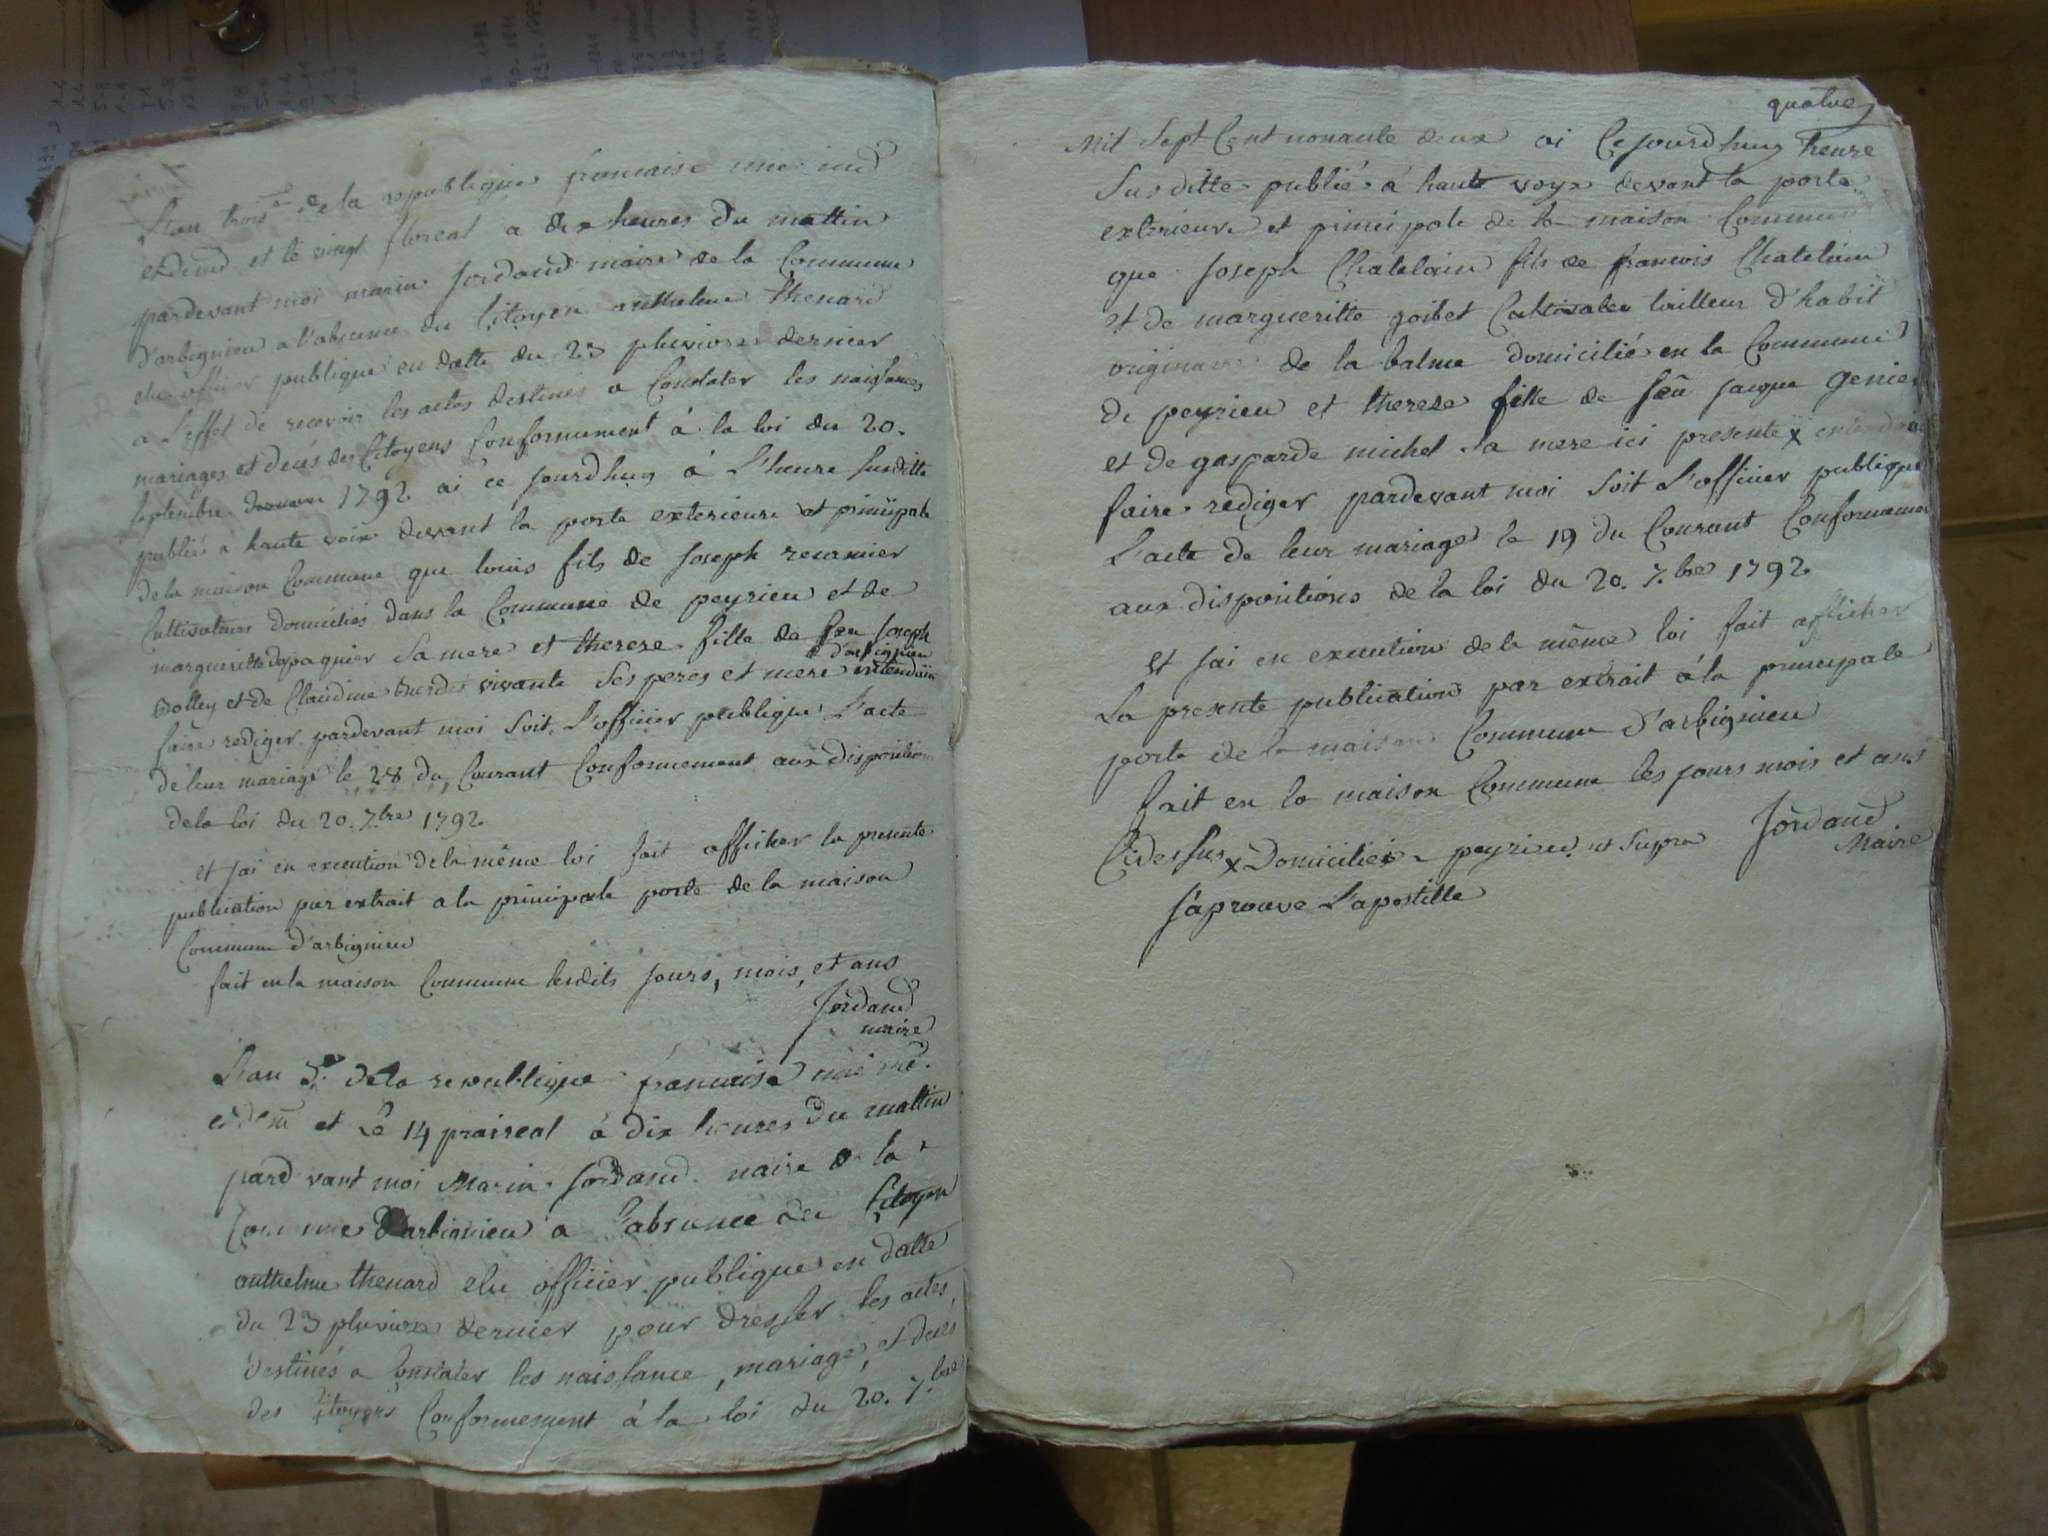 L'an trois.e de la republique francaise une ind
et divid et le vingt floreal a dix heures du mattin
pardevant moi marin Jordand maire de la Commune
d'arbignieu a l'absence du Citoyen anthelme thenard
elu officier publique en datte du 23 pluviose dernier
a L'effet de recevoir les actes destinés a Constater les naissances
mariages et decés des Citoyens Conformement à la loi du 20.
septembre 1792 ai ce jourdhuy à L'heure susditte
publié à haute voix devant la porte exterieure et principale
de la maison Commune que louis fils de Joseph reurmier
Cultivateurs domiciliés dans la Commune de peyrieu et de
margueritte depagnier sa mere et therese fille de feu Joseph
d'arbignieu
Bolley et de Claudine vivante ses peres et mere entendoin
faire rediger pardevant moi soit L'officier publique L'acte
de leur mariage le 28 du Courant Conformement aux disposition
de la loi du 20. 7.bre 1792
et jai en execution de la même loi fait afficher la presente
publication par extrait a la principale porte de la maison
Commune d'arbignieu
fait en la maison Commune lesdits jours, mois, et ans
Jordand
maire
L'an 3.e de la republique francaise
et le 14 praireal à dix heures du mattin
pard vant moi Marin Jordand maire de la
Commune D'arbignieu a l'absence du Citoyen
anthelme thenard elu officier publique en datte
du 23 pluviose dernier pour dresser les actes,
destinés a Constater les naissance, mariage, et decés
des Citoyens Conformement à la loi du 20. 7.bre
quatre
Mil Sept Cent nonante deux ai Cejourdhuy heure
Susditte publié à haute voye devant la porte
exterieure et principale de la maison Commune
que Joseph Chatelain fils de francois Chatelain
et de margueritte goibet Cultivateur tailleur d'habit
originaire de la balme domicilié en la Commune
de peyrieu et therese fille de feû jacque Genier
et de gasparde michel sa mere ici presente x entendoin
faire rediger pardevant moi soit L'officier publique
L'acte de leur mariage le 19 du Courant Conformement
aux dispositions de la loi du 20. 7.bre 1792
et jai en execution de la même loi fait afficher
La presente publication par extrait à la principale
porte de la maison Commune d'arbignieu
fait en la maison Commune les jours mois et ans
Cidessus x Domiciliés a peyrieu ut supra Jordand
Maire
J'aprouve L'apostille